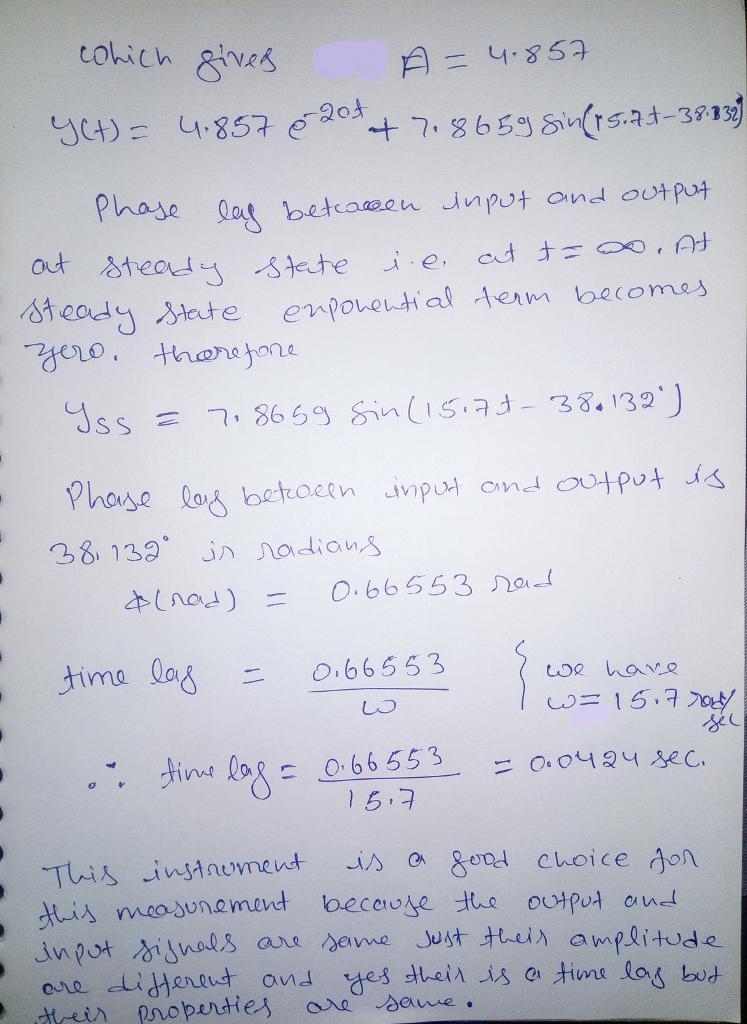 which gives A = 4.857
y(t) = 4.857 e^-20t + 7.8659 sin(15.7t-38.132)
Phase lag between input and output
at steady state i.e. at t = ∞. At
steady state exponential term becomes
zero. therefore
Yss = 7.8659 sin(15.7t - 38.132°)
Phase lag between input and output is
38.132° in radians
ϕ(rad) = 0.66553 rad
time lag = 0.66553 / ω { we have ω = 15.7 rad/sec
∴ time lag = 0.66553 / 15.7 = 0.0424 sec.
This instrument is a good choice for
this measurement because the output and
input signals are same just their amplitude
are different and yes their is a time lag but
their properties are same.